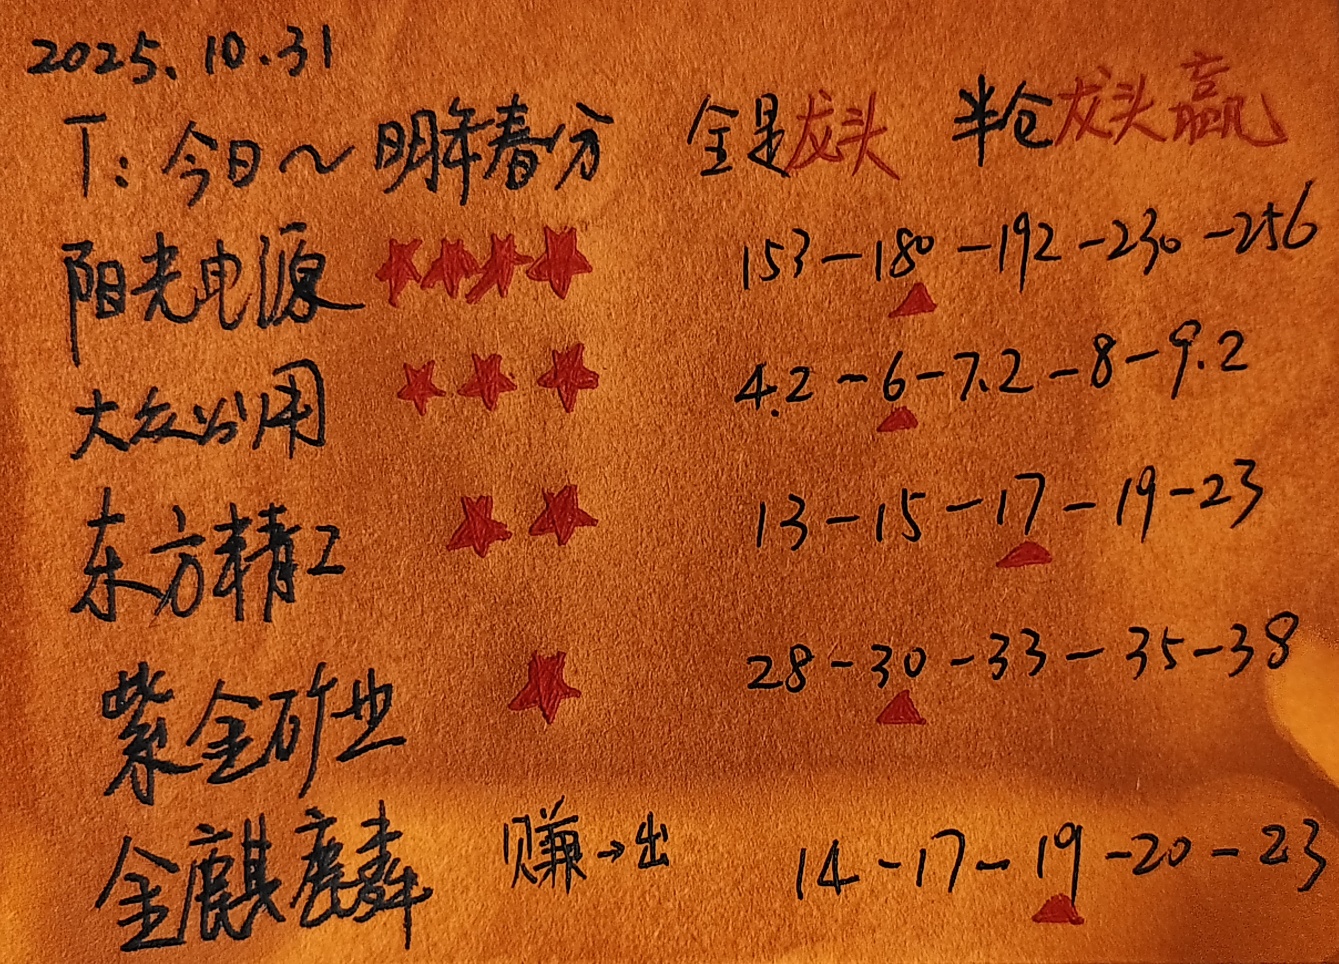 2025.10.31
T:今日～明年春分 全是龙头 半仓龙头赢
阳光电源 ★★★★ 153-180-192-230-256
大众公用 ★★★ 4.2-6-7.2-8-9.2
东方精工 ★★ 13-15-17-19-23
紫金矿业 ★ 28-30-33-35-38
金麒麟 赚→出 14-17-19-20-23